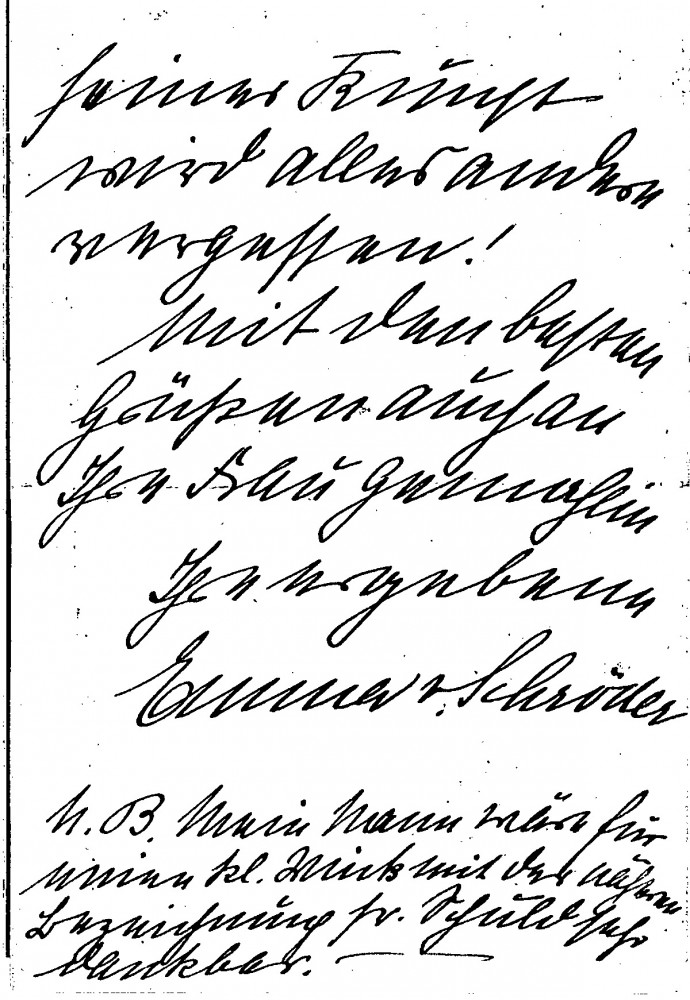 seiner Kunst
wird alles andere
vergessen!
Mit den besten
Grüßen auch an
Ihre Frau Gemahlin
Ihre ergebene
Emma v. Schröder
N.B. Mein Mann wäre für
einen kl. Wink mit der näheren
Bezeichnung sr. Schuld sehr
dankbar. —